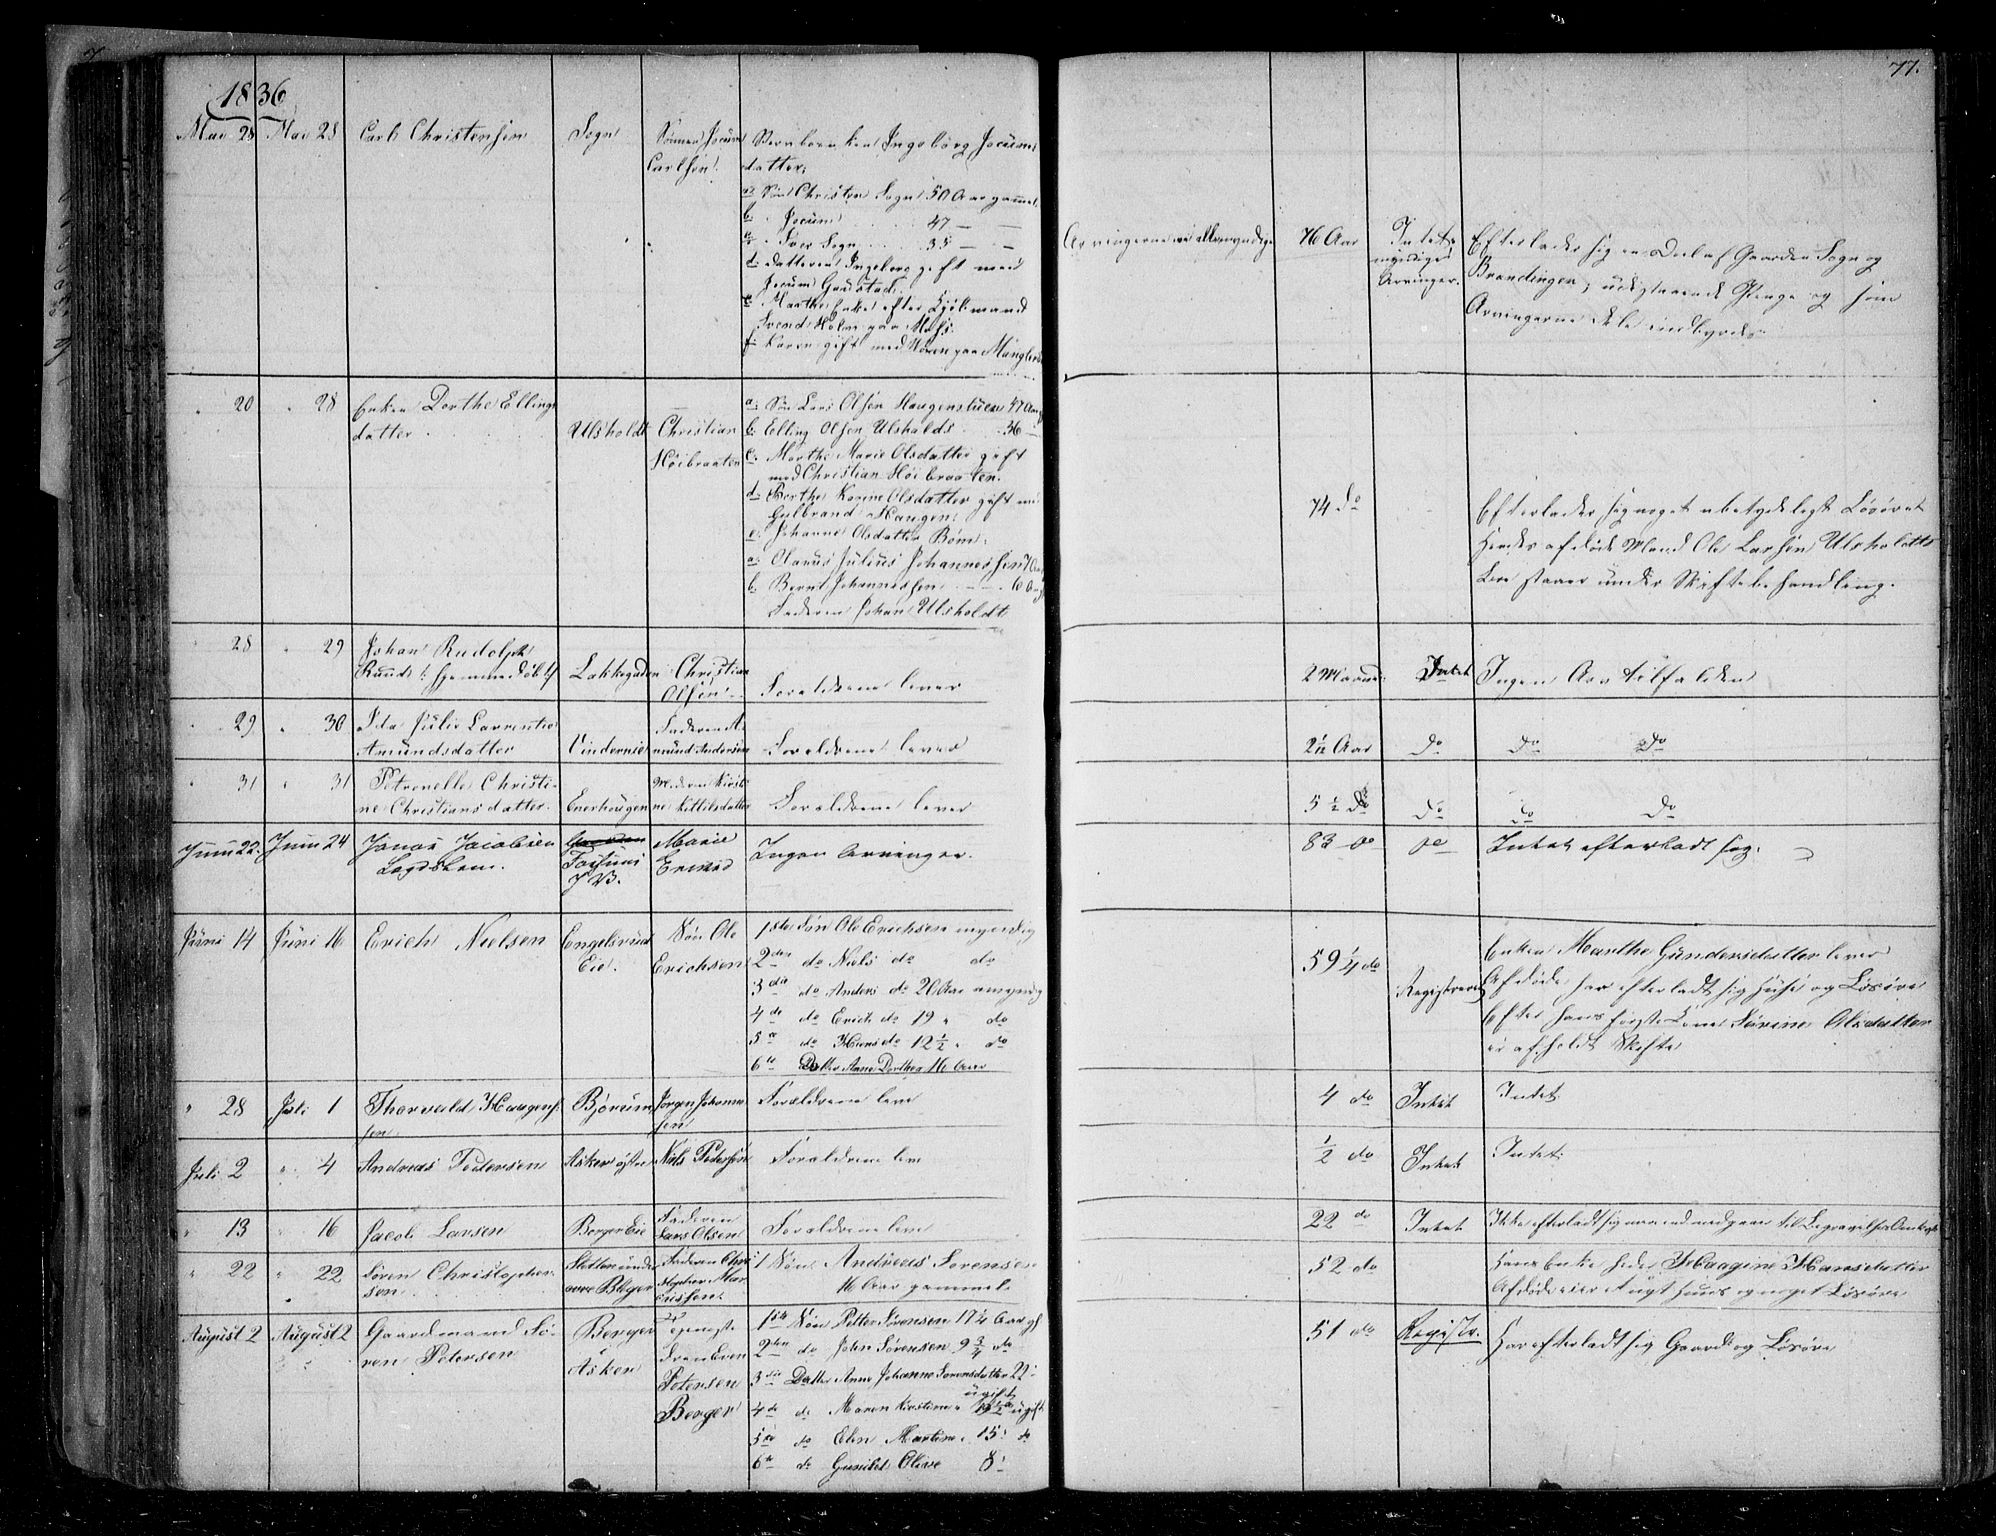 77.
1836
Mai 28 Mai 28 Carl Christensen Sogn Sønnen Jocum
Carlsen.
Børnbørn ken Ingeborg Jocums
datter.
a: Søn Christen Sogn 50 Aar gammel
b: " Jocum 47 — —
c: " Iver Sogn 35 — —
d: datteren Ingeborg gift med
Jocum Gaustad.
e: Marthe Enke efter Kjøbmand
Svend Holm paa Moss.
f: Karen gift med Søren paa Manglerud
Arvingerne ere alle myndige 76 Aar Intet
myndige
Arvinger.
Efterlader sig en Deel af Gaarden Sogn og
Brændingen, udestaaende Penge og som
Arvingerne dele indbyrdes
" 20 " 28 Enken Dorthe Ellings
datter Ulsholdt Christian
Høibraaten
a: Søn Lars Olsen Haugenstuen 47 Aar
b: Elling Olsen Ulsholdt 36 —
c: Marthe Marie Olsdatter gift
med Christian Høibraaten.
d: Berthe Karine Olsdatter gift med
Gulbrand Haugen.
e: Johanne Olsdatter Bom:
a: Olaus Julius Johannessen 7 Aar
b: Bernt Johannessen 6 Aar
Faderen Johan Ulsholdt
74 do
Efterlader sig noget ubetydeligt Løsøre
Hendes afdøde Mand Ole Larsen Ulsholdts
Boe staaer under Skiftebehandling.
" 28 " 29 Johan Rudolph
Ruud /: hjemmedøbt :/ Lakkegaden Christian
Olsen Forældrene lever
2 Maaned Intet Ingen Arv tilfalden
" 29 " 30 Ida Julie Laurentie
Amundsdatter Vindernie Faderen A-
mund Andersen Forældrene lever
2½ Aar do do do
" 31 " 31 Petronelle Christi-
ne Christiansdatter. Enerhougen Moderen Kirsti-
ne Kittilsdatter Forældrene lever
5½ do do do do
Juni 22 Juni 24 Jonas Jacobsen
Logdslem. Marie
Ingen Arvinger.
83 do do Intet efterladt sig.
Juni 14 Juni 16 Erich Nielsen Engelsrud
Eie. Søn Ole
Erichsen
1ste Søn Ole Erichsen myndig
2den do Niels do do
3die do Anders do 20 Aar umyndig
4de do Erich do 19 " do
5te do Hans do 12½ " do
6te Datter Anne Dorthea 16 Aar
59¼ do Registreres
Enken Marthe Gundersdatter lever
Afdøde har efterladt sig Huse og Løsøre
Efter hans første Kone Karine Olsdatter
er afholdt Skifte
" 28 Juli 1 Thorvald Haagens-
sen Bjørum Jørgen Johannes-
sen Forældrene leve
4 do Intet Intet
Juli 2 " 4 Andreas Pedersen Asker østre Niels Pedersen Forældrene leve
½ do Intet Intet
" 13 " 16 Jacob Larsen Berger Eie Faderen
Lars Olsen Forældrene leve
22 do Intet Ikke efterladt sig mere end medgaaer til Begravelses Omkost
" 22 " 22 Søren Christopher-
sen Sletten under
øvre Berger Faderen Chri-
stopher Mar-
cussen. 1 Søn Andreas Sørensen
16 Aar gammel
52 do
Hans Enke heder Haagine Hansdatter
Afdøde eier Huus og noget Løsøre
August 2 August 2 Gaardmand Sø-
ren Petersen Berger
i
Asker
Even
Petersen
Berger
1ste Søn Petter Sørensen 17¼ Aar gl
2den do John Sørensen 9¾ do
3die Datter Anne Johanne Sørensdatter 22
ugift
4de do Maren Kirstine 19½ ugift
5te do Elen Martine 15 do
6te do Gunild Olive 8
51 do Registr. Har efterladt sig Gaard og Løsøre